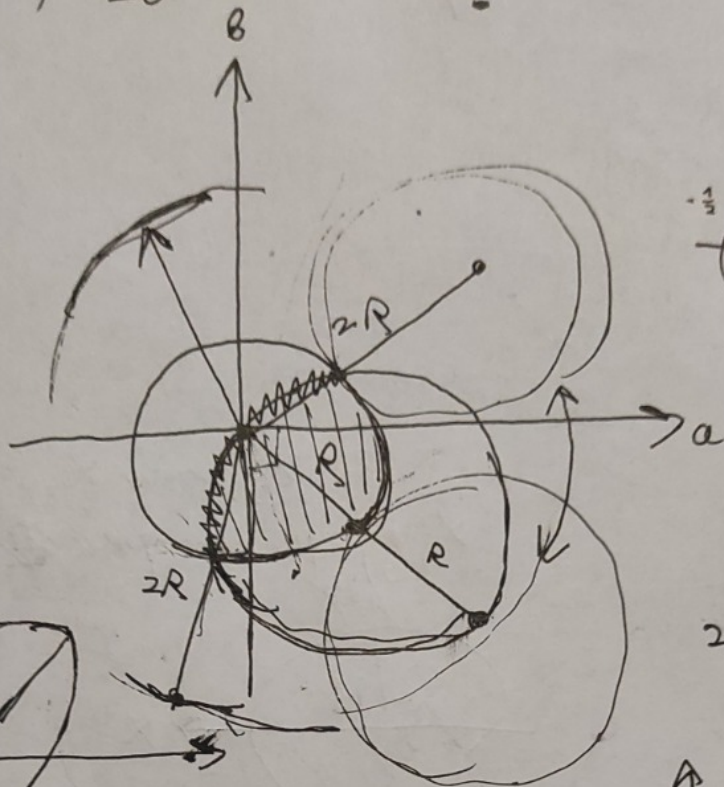 b
-1/2
2R
a
R
R
2R
2